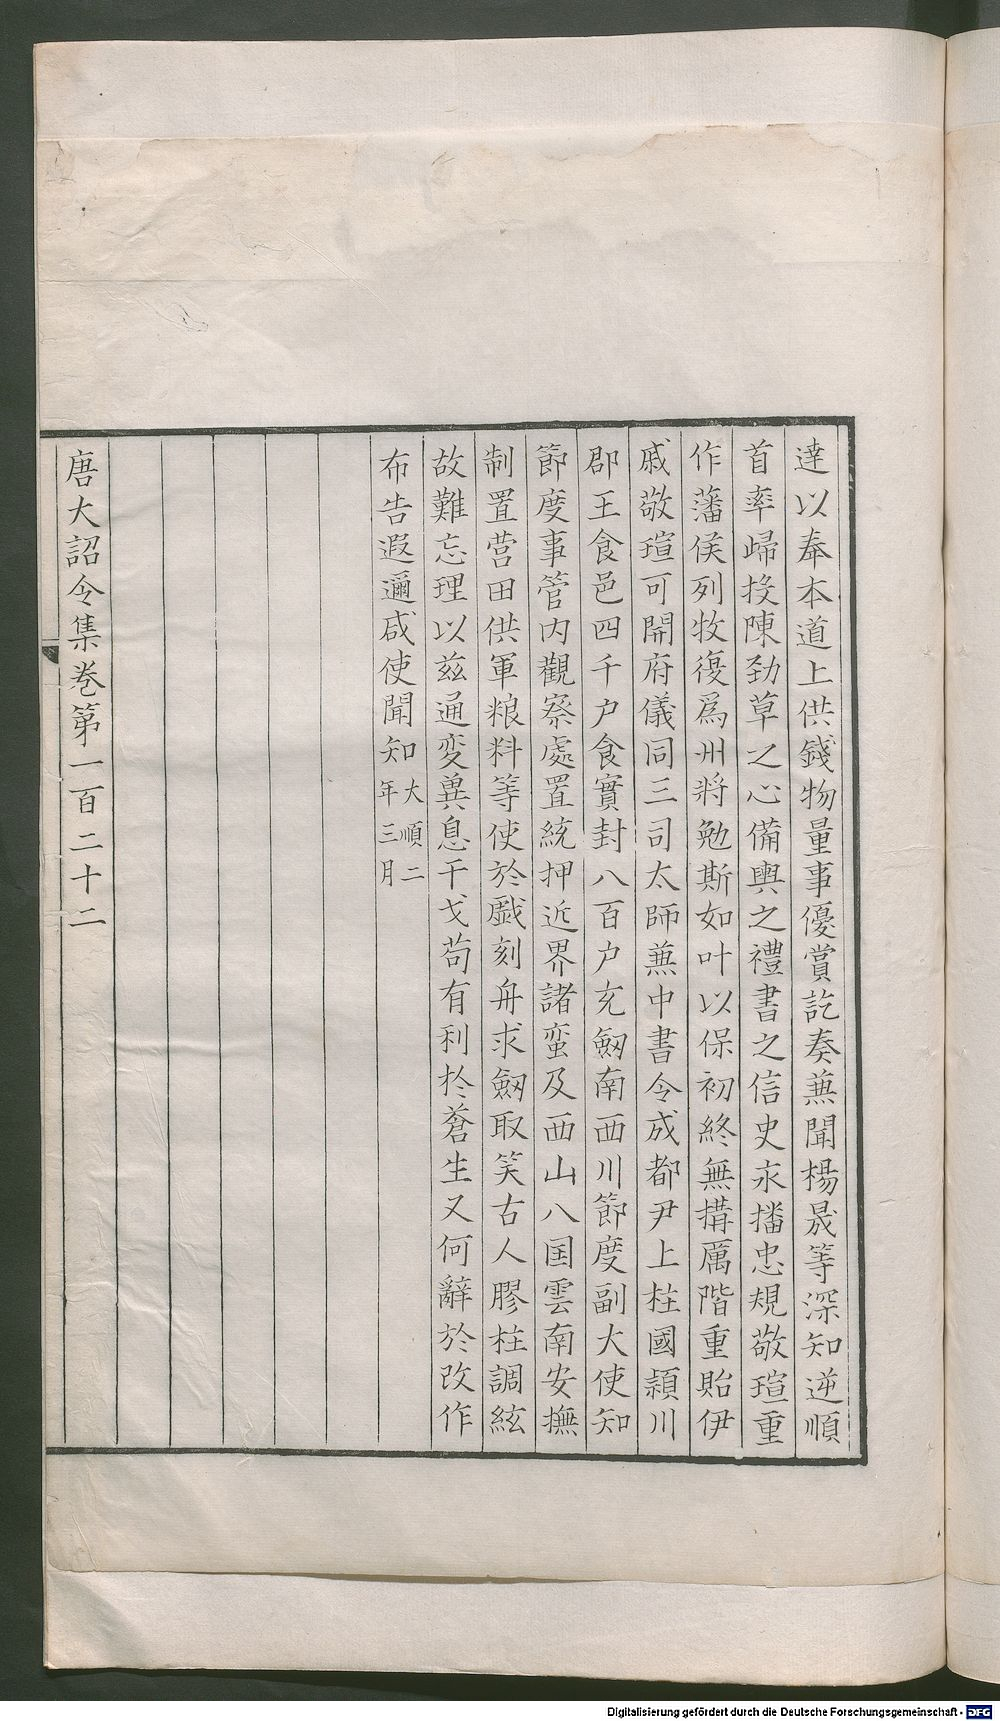 達以奉本道上供錢物量事優賞訖奏蕪聞楊晟等深知逆順
首率歸投陳勁草之心備輿之禮書之信史永播忠規敬瑄重
作藩侯列牧復爲州將勉斯如叶以保初終無搆厲階重貽伊
戚敬瑄可開府儀同三司太師蕪中書令成都尹上柱國潁川
郡王食邑四千户食實封八百户充劔南西川節度副大使知
節度事管内觀察處置統押近界諸蛮及西山八国雲南安撫
制置营田供軍粮料等使於戯刻舟求劔取笑古人膠柱調絃
故難忘理以兹通变兾息干戈苟有利於蒼生又何辭於改作
布告遐邇咸使聞知大順二
年三月
唐大詔令集卷第一百二十二
Digitalisierung gefördert durch die Deutsche Forschungsgemeinschaft - DFG